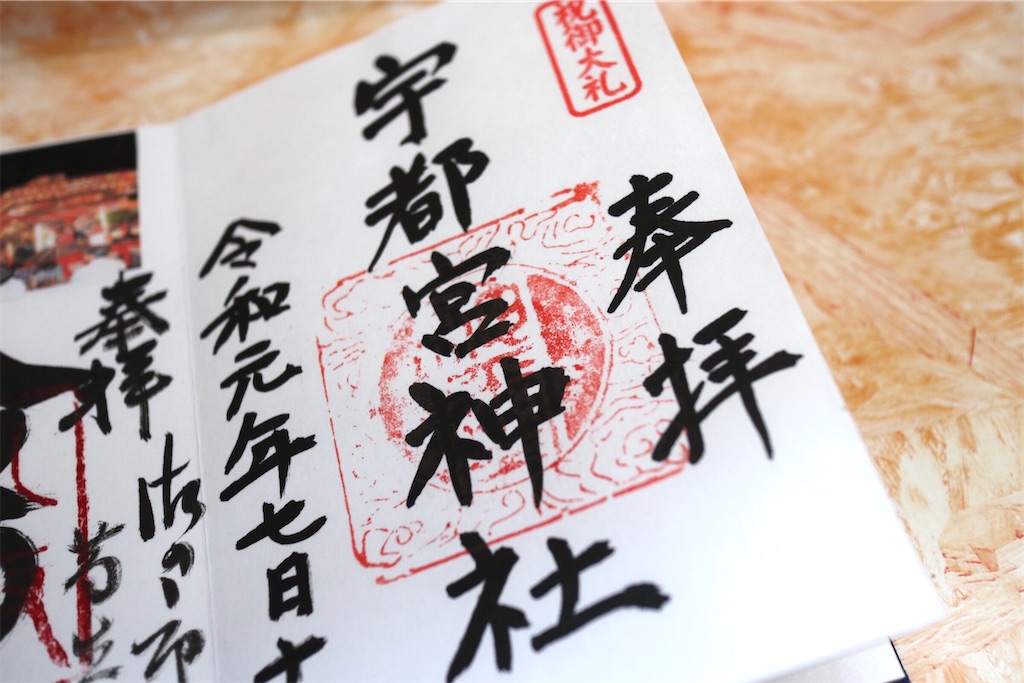 祝御大礼
奉拝
宇都宮神社
令和元年七日十
奉拝